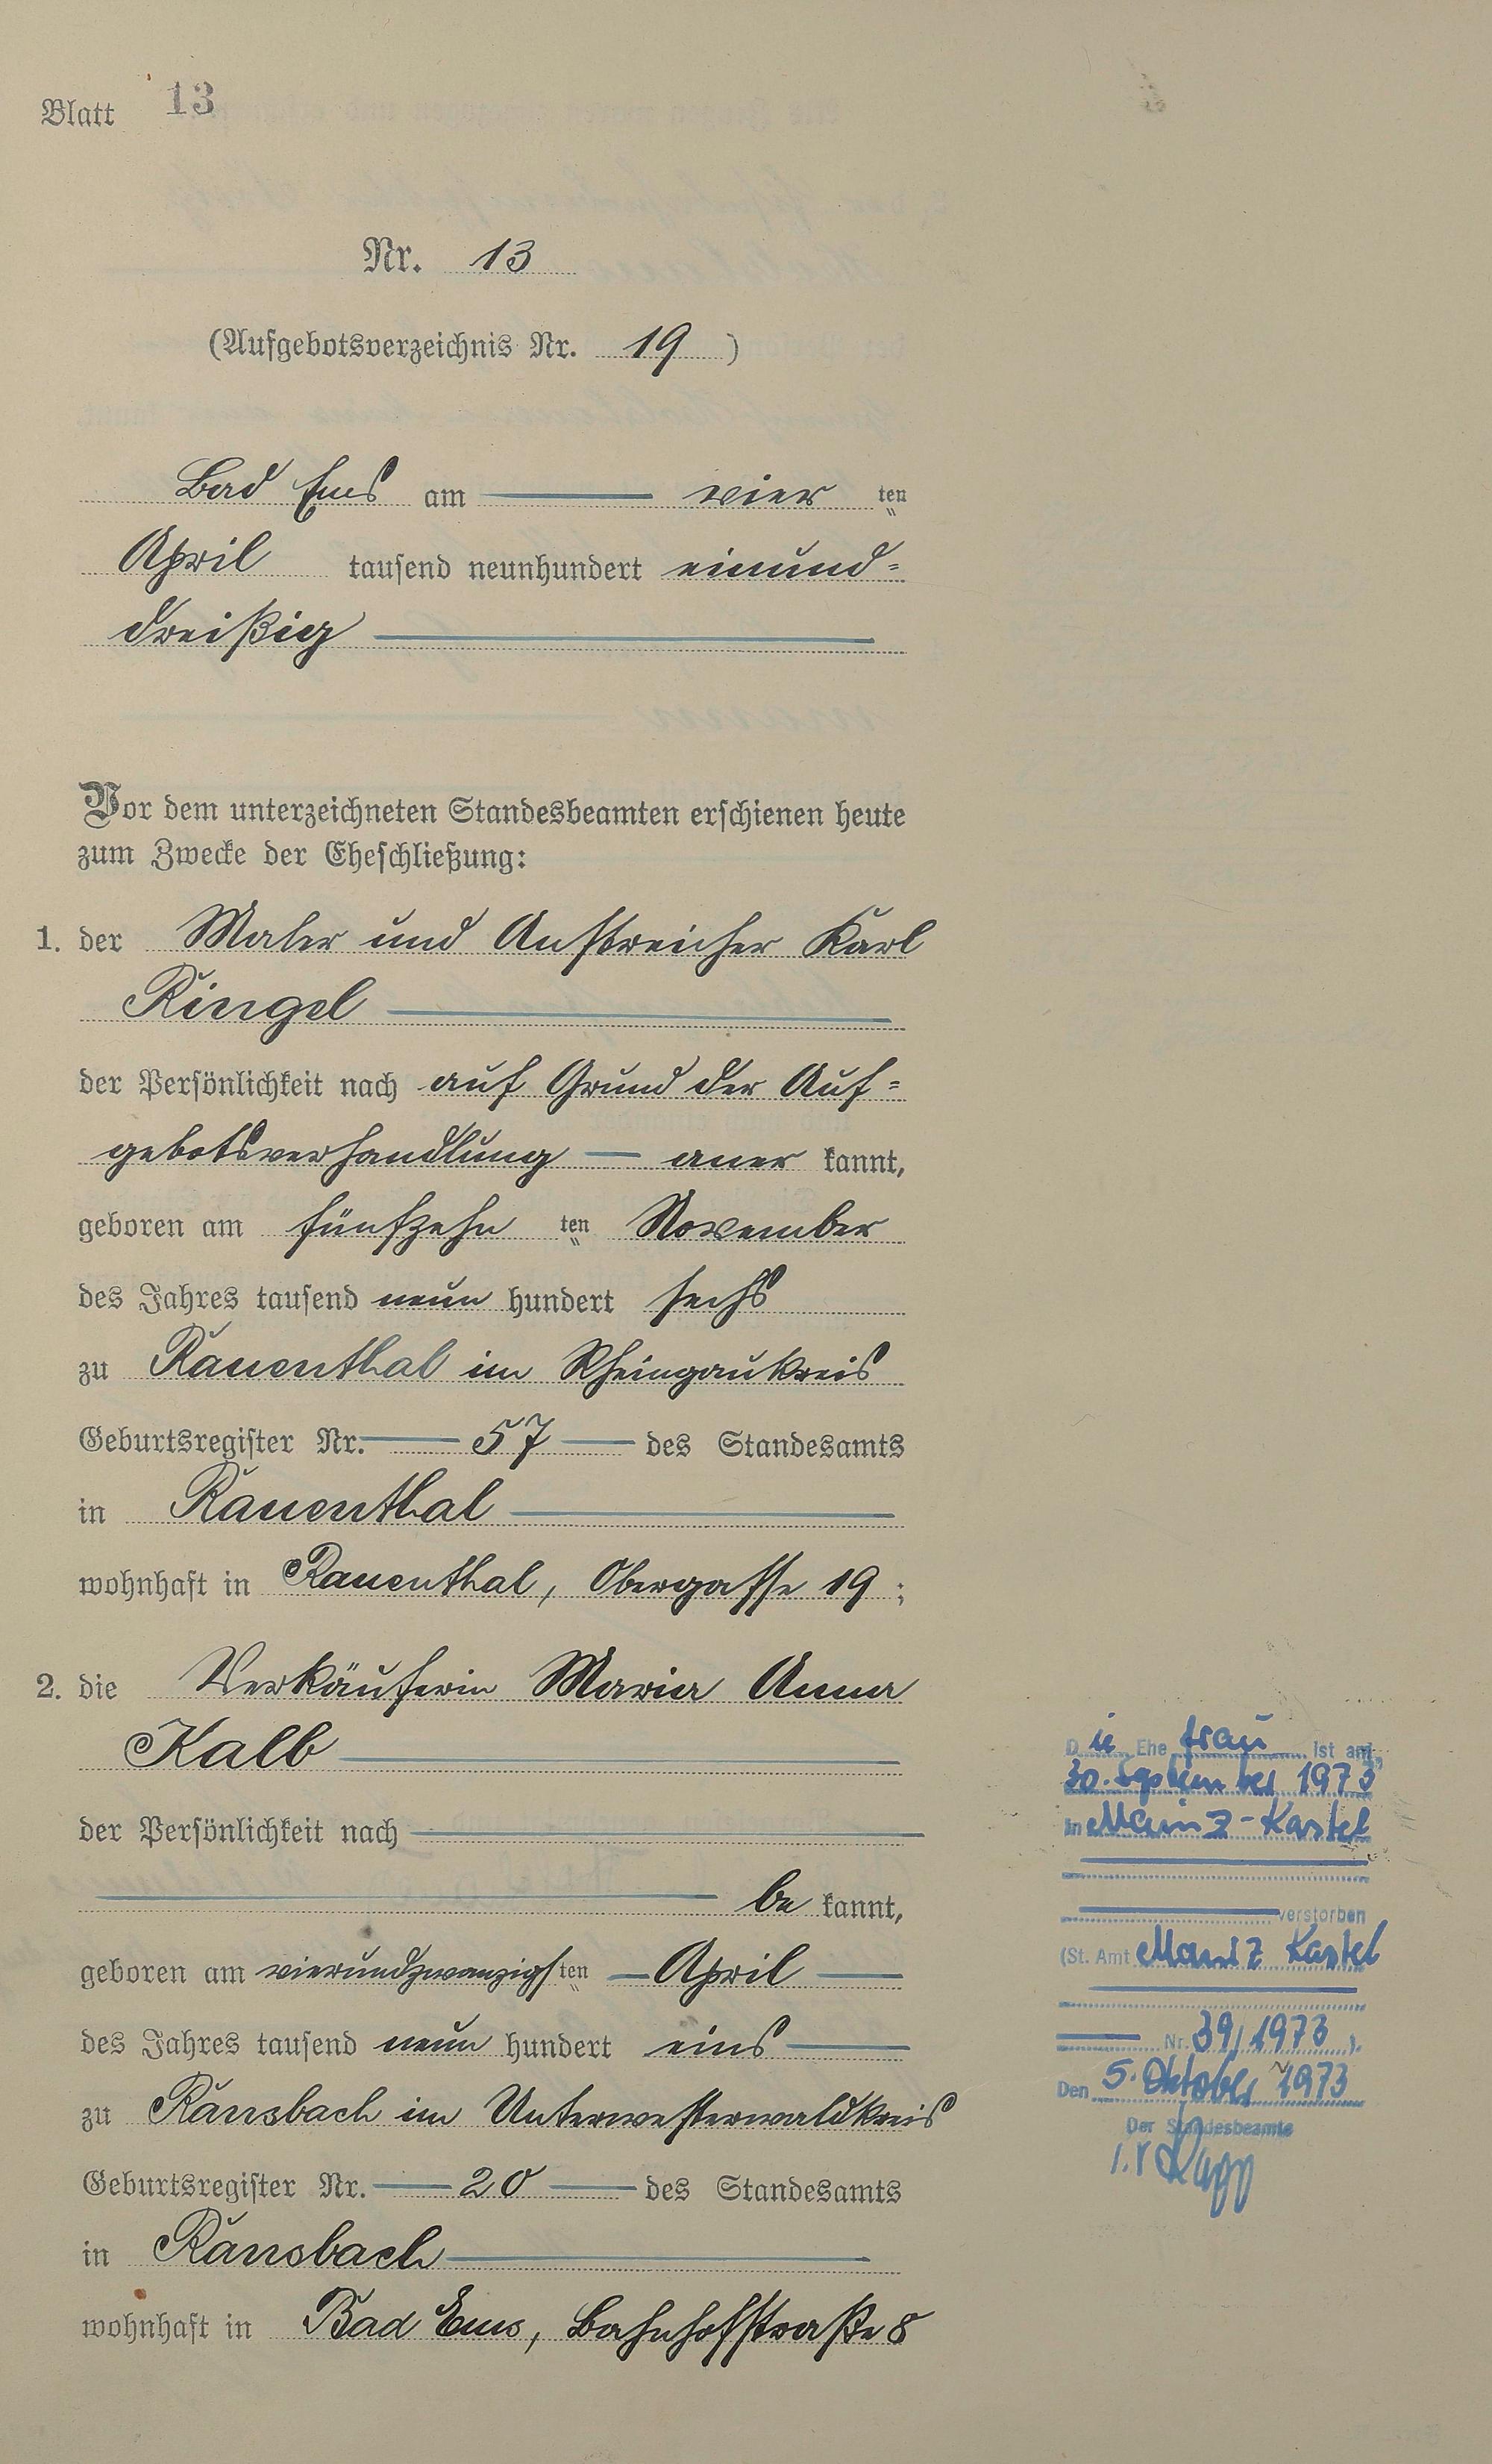 Blatt 13
Nr. 13
(Aufgebotsverzeichnis Nr. 19 )
Bad Ems am vier ten
April tausend neunhundert einund=
dreißig
Vor dem unterzeichneten Standesbeamten erschienen heute
zum Zwecke der Eheschließung:
1. der Maler und Anstreicher Karl
Ringel
der Persönlichkeit nach auf Grund der Auf=
gebotsverhandlung — aner kannt,
geboren am fünfzehn ten November
des Jahres tausend neun hundert sechs
zu Rauenthal im Rheingaukreis
Geburtsregister Nr. 57 des Standesamts
in Rauenthal
wohnhaft in Rauenthal, Obergasse 19 ;
2. die Verkäuferin Maria Anna
Kalb
der Persönlichkeit nach
be kannt,
geboren am vierundzwanzigsten April
des Jahres tausend neun hundert eins
zu Ransbach im Unterwesterwaldkreis
Geburtsregister Nr. 20 des Standesamts
in Ransbach
wohnhaft in Bad Ems, Bahnhofstraße 8
Die Ehefrau ist am
30. September 1973
in Mainz-Kastel
verstorben
(St. Amt Mainz Kastel
Nr. 39/1973 ).
Den 5. Oktober 1973
Der Standesbeamte
i.V.